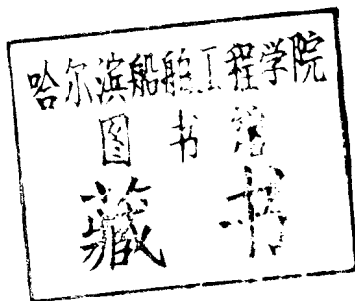 哈尔滨船舶工程学院
图书馆
藏书